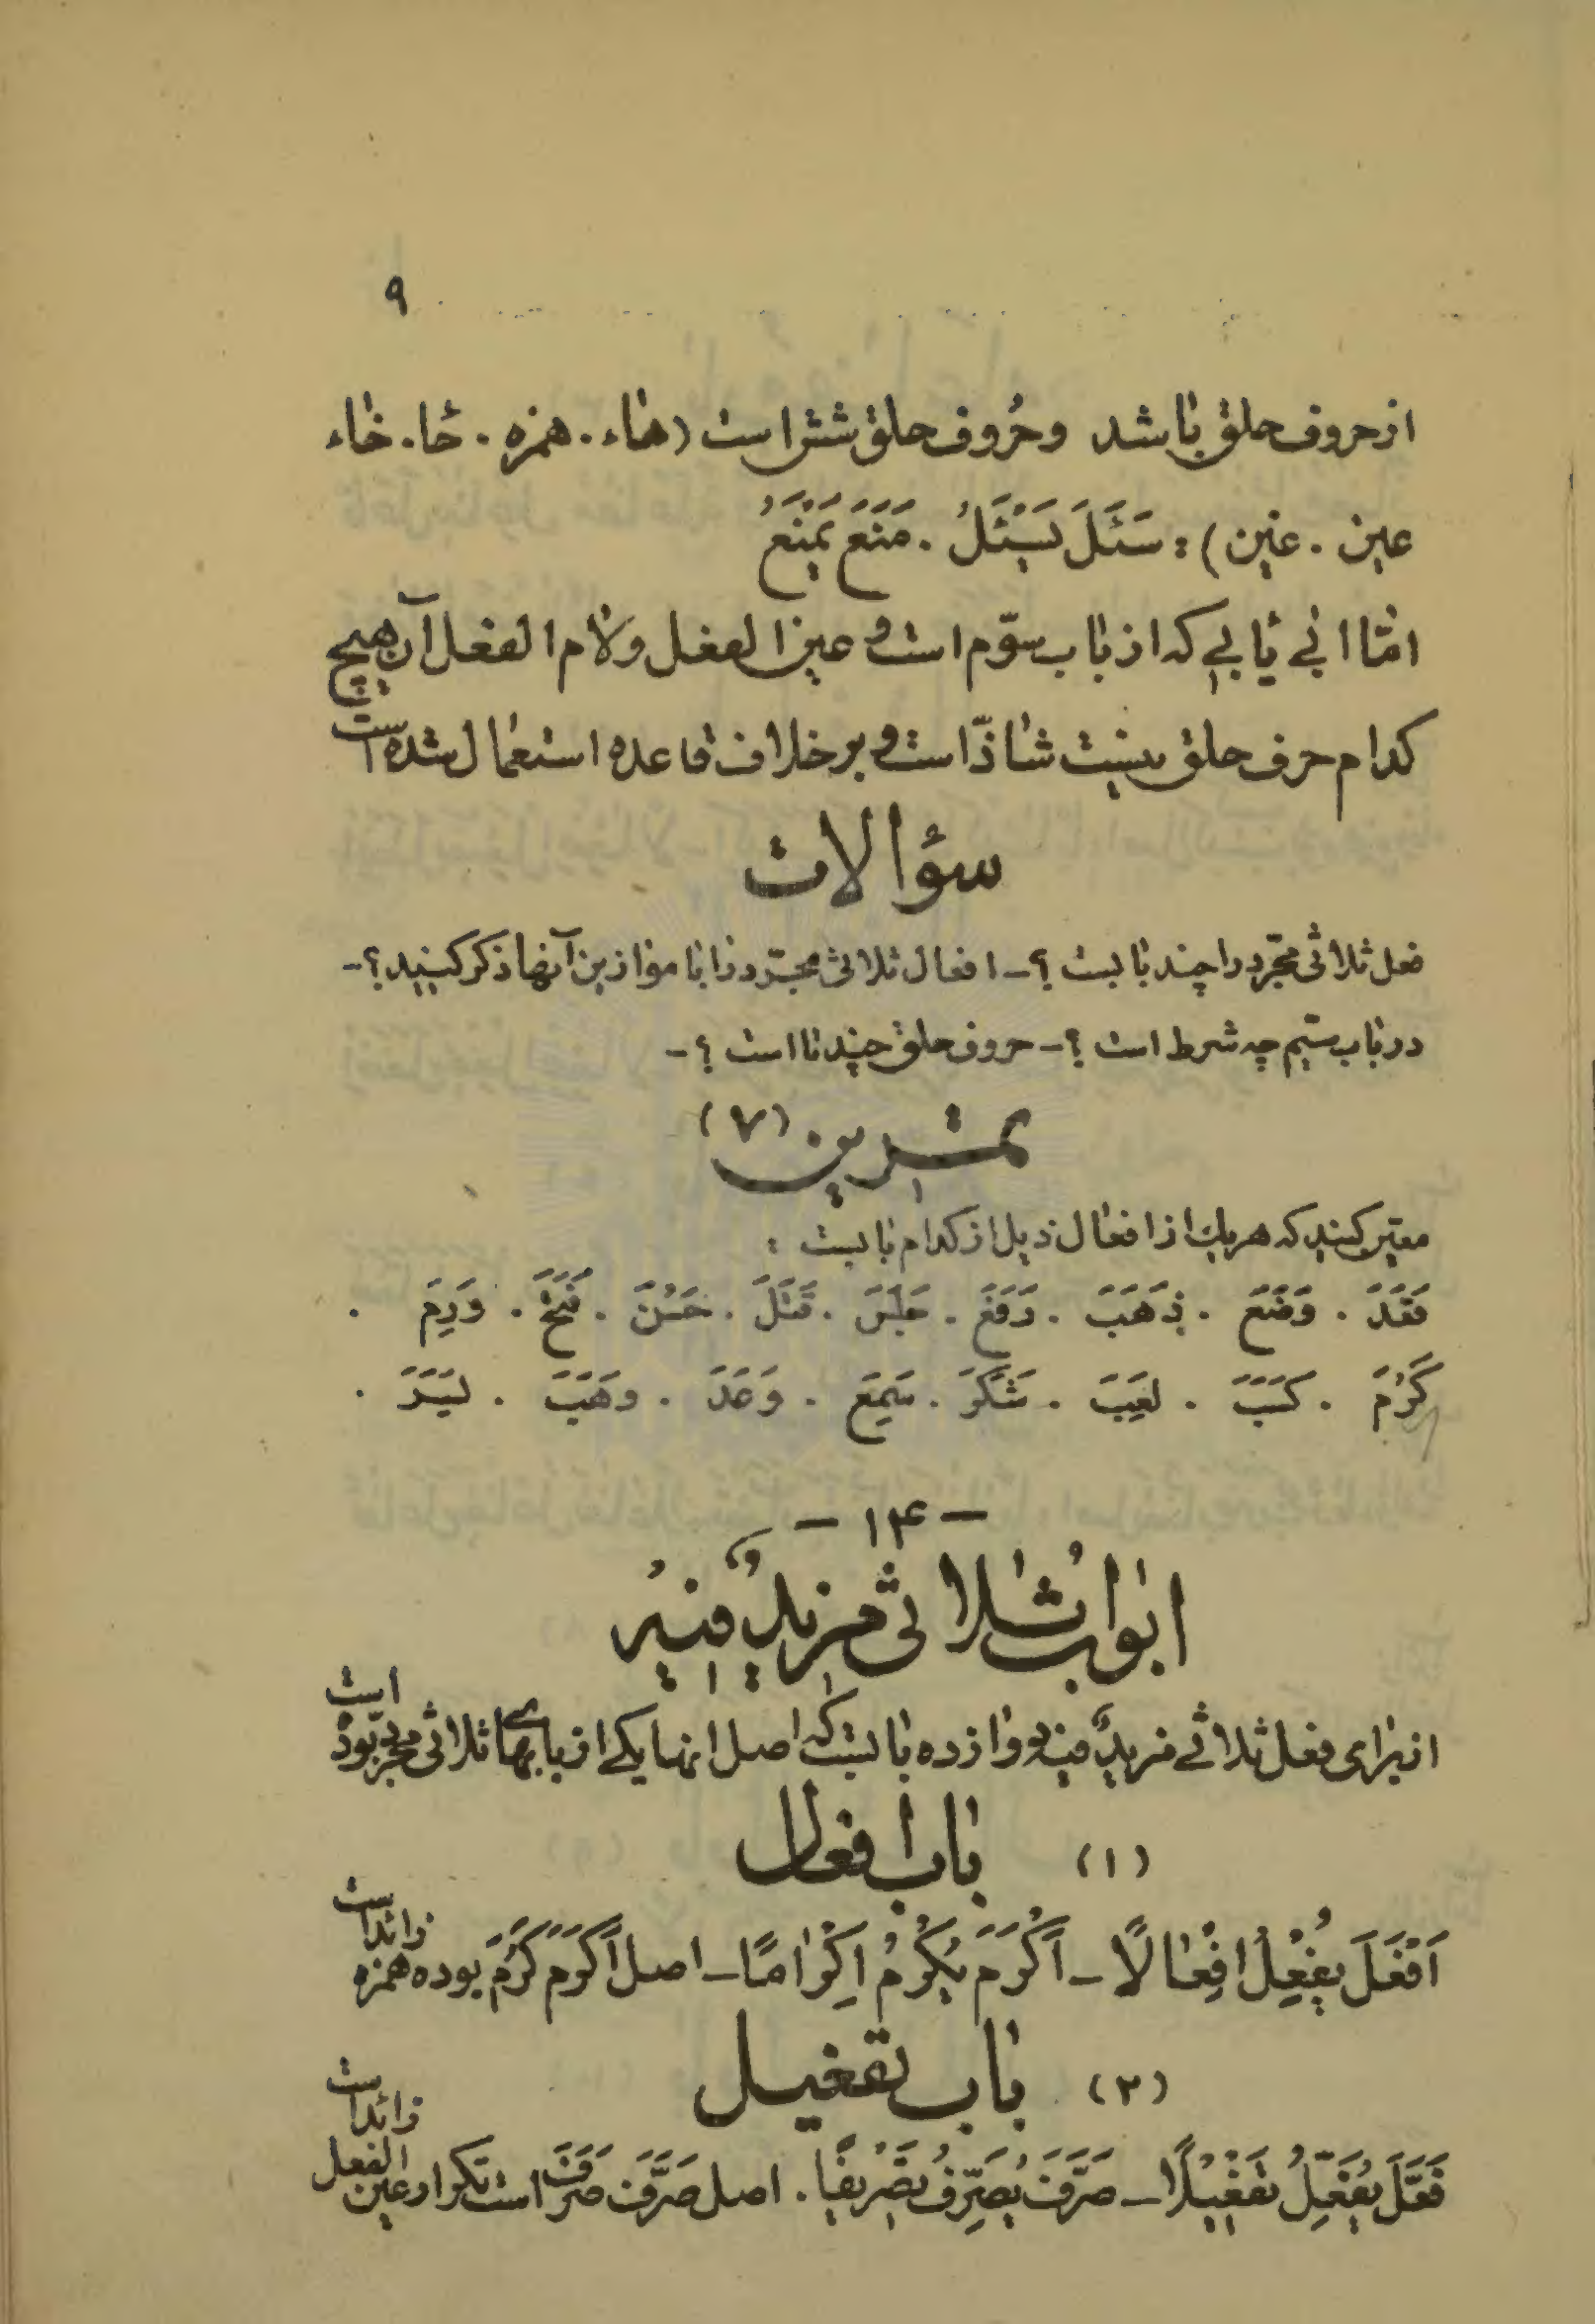 ۹
از حروف حلق باشد و حُروف حلق شش است (هاء . همزه . حا . خاء
عین . غین) : سَئَلَ یَسْئَلُ . مَنَعَ یَمْنَعُ
امّا ابی یابی که از باب سوّم است و عین الفعل و لام الفعل آن هیچ
کدام حرف حلق نیست شاذّ است و بر خلاف قاعده استعمال شده است
سؤالات
فعل ثلاثی مجّرد را چند بابست ؟ - افعال ثلاثی مجّرد را با موازین آنها ذکر کنید ؟ -
در باب سیّم چه شرط است ؟ - حروف حلق چند تا است ؟ -
تمرین (۷)
معیّن کنید که هر یک از افعال ذیل از کدام بابست :
فَقَدَ . وَضَعَ . ذَهَبَ . رَفَعَ . جَلَسَ . قَتَلَ . حَسُنَ . فَتَحَ . وَرِمَ .
کَرُمَ . کَسَبَ . لَعِبَ . شَکَرَ . سَمِعَ . وَعَدَ . وَهَبَ . یَسَرَ .
- ۱۴ -
ابوابُ ثلاثی مزیدٌ فیهُ
از برای فعل ثلاثی مزیدٌ فیه دوازده بابست که اصل اینها یکی از بابهای ثلاثی مجرّد بوده است
(۱) باب افعال
اَفْعَلَ یُفْعِلُ اِفْعالًا - اَکْرَمَ یُکْرِمُ اِکْرامًا - اصل اَکْرَمَ کَرُمَ بوده همزه زائد است
(۲) باب تفعیل
فَعَّلَ یُفَعِّلُ تَفْعیلًا - صَرَّفَ یُصَرِّفُ تَصْریفًا . اصل صَرَّفَ صَرَفَ است تکرار عین الفعل زائد است